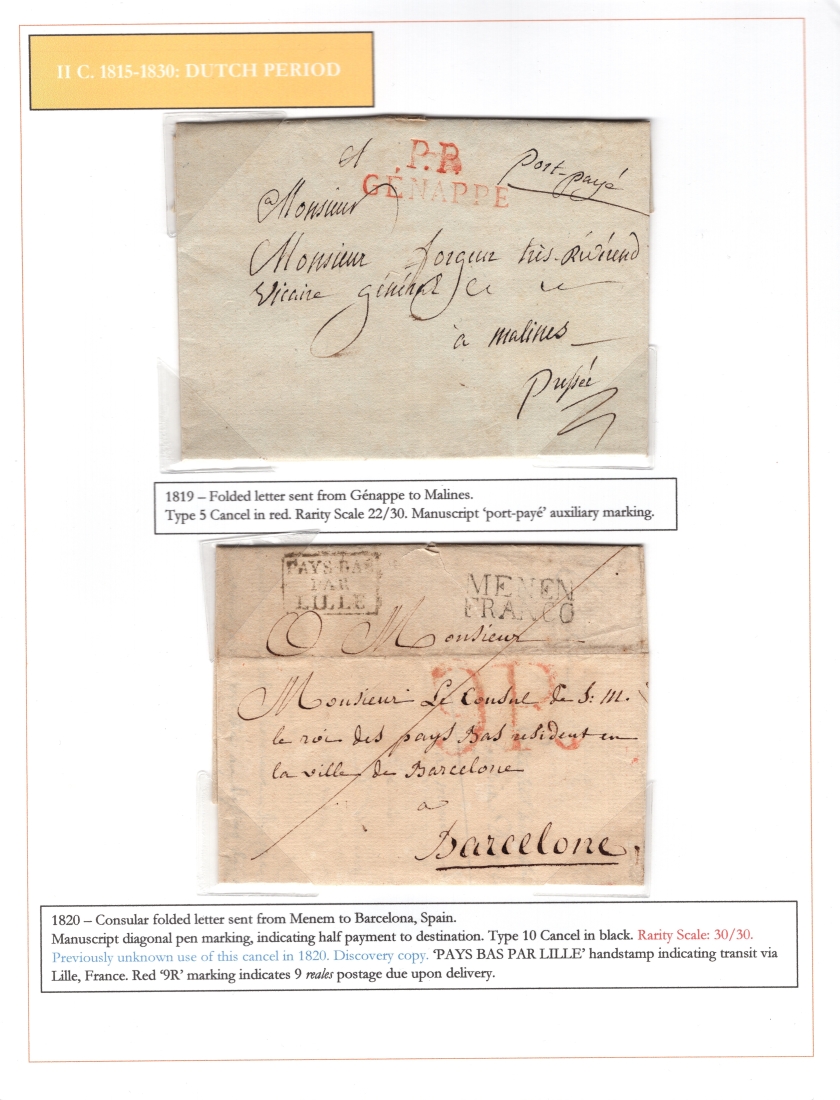 II C. 1815-1830: DUTCH PERIOD
P.P.
GÉNAPPE
Port-payé
a Monsieur
Monsieur forgeur très-Révérend
Vicaire général
à malines
Pressée
1819 – Folded letter sent from Génappe to Malines.
Type 5 Cancel in red. Rarity Scale 22/30. Manuscript ‘port-payé’ auxiliary marking.
PAYS-BAS
PAR
LILLE
MENEN
FRANCO
A Monsieur
9R.
Monsieur Le Consul de S: M.
le roi des pays Bas résident en
la ville de Barcelone
a
Barcelone.
1820 – Consular folded letter sent from Menem to Barcelona, Spain.
Manuscript diagonal pen marking, indicating half payment to destination. Type 10 Cancel in black. Rarity Scale: 30/30.
Previously unknown use of this cancel in 1820. Discovery copy. ‘PAYS BAS PAR LILLE’ handstamp indicating transit via
Lille, France. Red ‘9R’ marking indicates 9 reales postage due upon delivery.